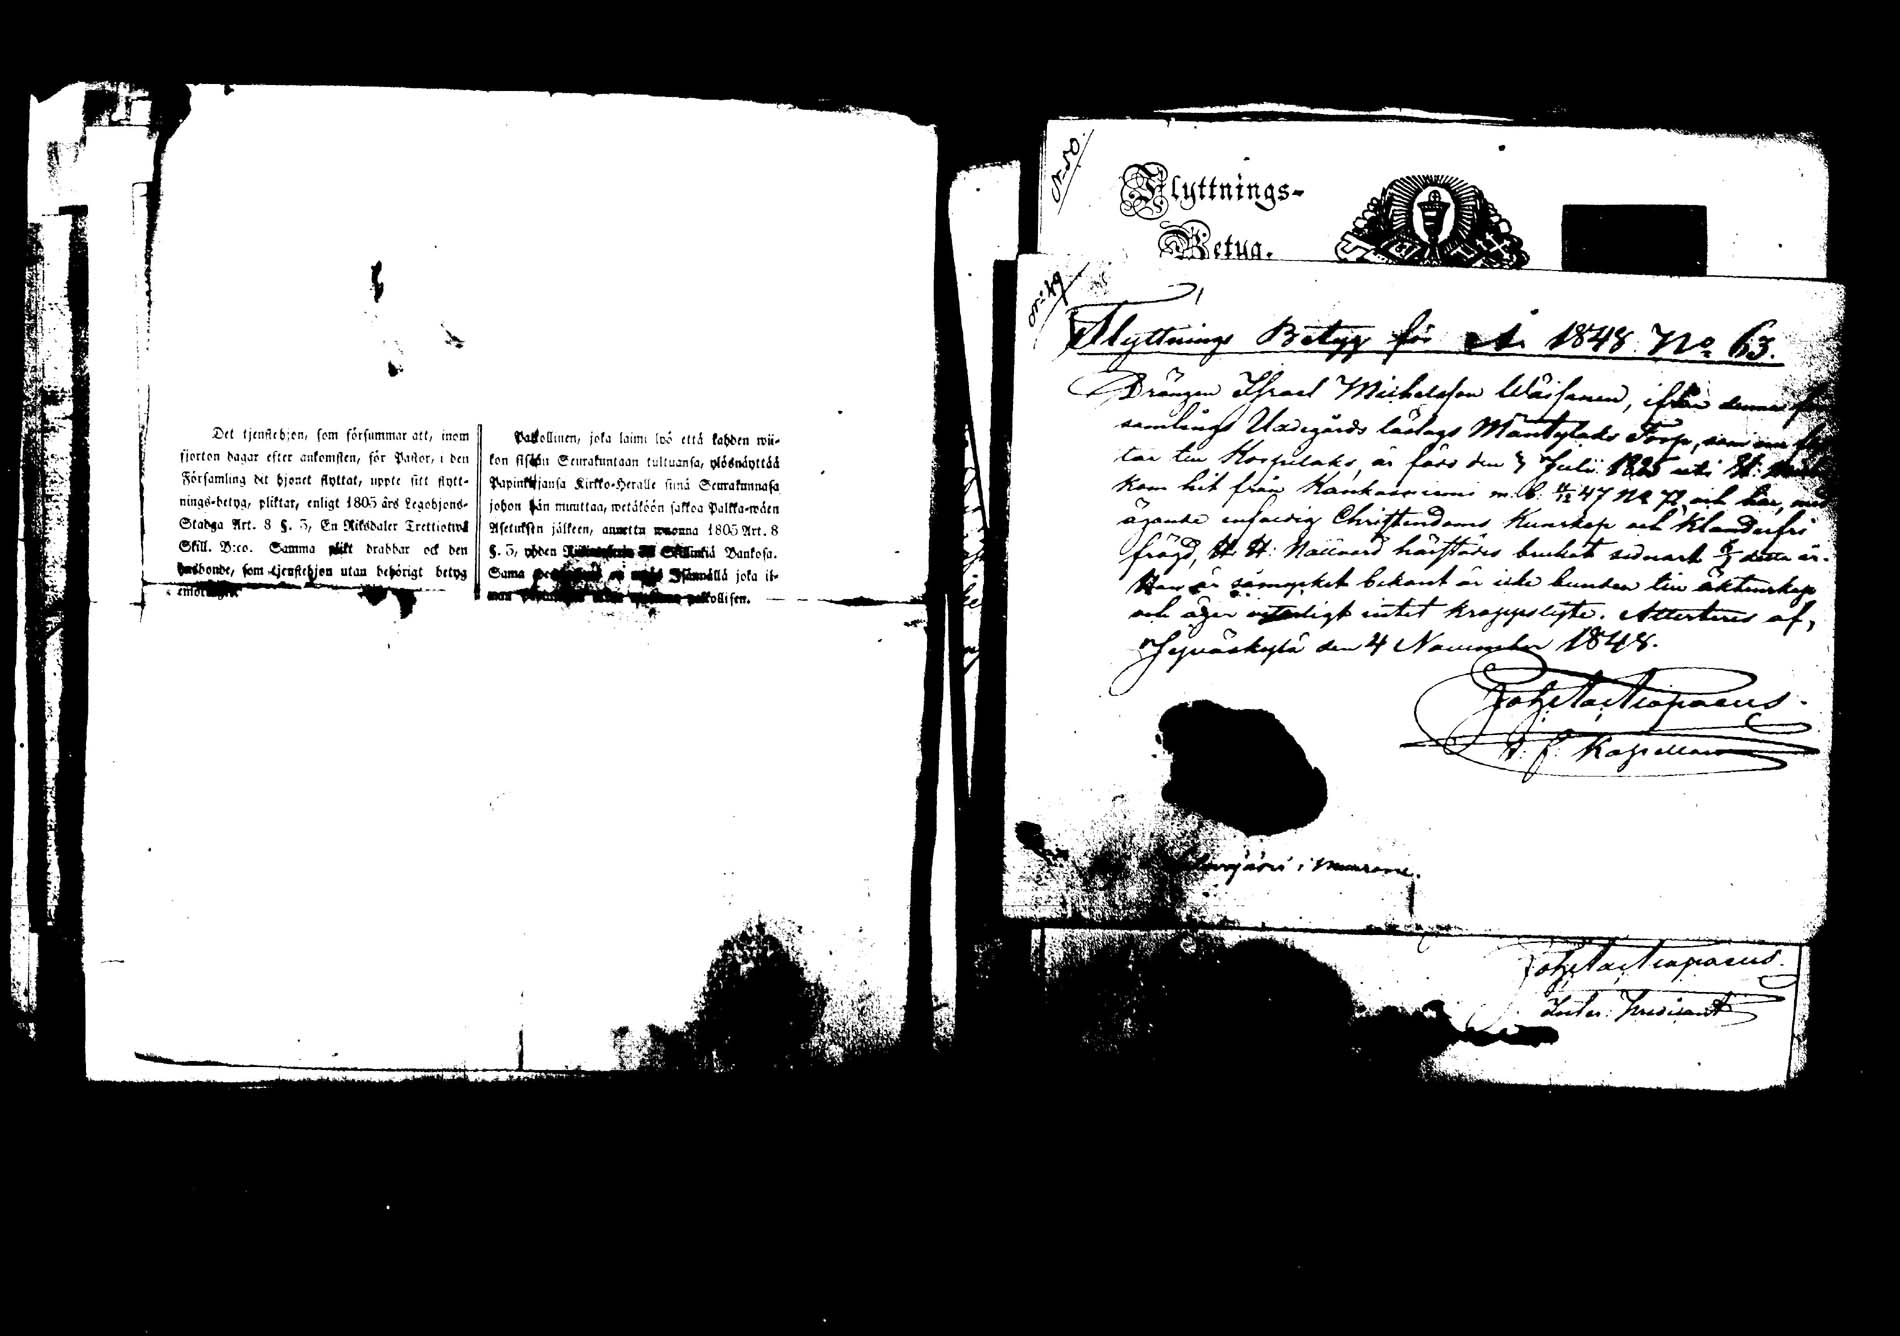 Det tjenstehjon, som försummar att, inom
fjorton dagar efter ankomsten, för Pastor, i den
Församling det hjonet flyttat, uppte sitt flytt-
nings-betyg, pliktar, enligt 1805 års Legohjons-
Stadga Art. 8 §. 3, En Riksdaler Trettiotwå
Skill. B:co. Samma plikt drabbar ock den
husbonde, som tjenstehjon utan behörigt betyg
emottager.
Palkollinen, joka laimi lyö että kahden wii-
kon sisään Seurakuntaan tultuansa, ylösnäyttää
Papinkirjansa Kirkko-Heralle siinä Seurakunnasa
johon hän muuttaa, wetäköön sakkoa Palkka-wäen
Asetuksen jälkeen, annettu wuonna 1805 Art. 8
§. 3, yhden Skillinkiä Bankosa.
Sama Isännällä joka il-
man palkollisen.
N:o 50.
Flyttnings-
Betyg.
N:o 49
Flyttnings Betyg för År 1848 No 63.
Drängen Israel Michelsson Wäisänen, ifrån denna för
samlings Mäntylaks Torp, som nu flyt
tar till Korpilaks, är född den Julii 1825 uti St: Mich
kom hit från Kankawiemi m. b. 47 No 72, och har, med
ägande enfaldig Christendoms Kunskap och Klanderfri
frägd, H. H: Nattvard härstädes detta år.
Han är såmycket bekant är icke bunden till äktenskap
och äger veterligt intet kroppslyte. Attesteras af,
Jyväskylä den 4 November 1848.
v. f. Kapellan
i Muurame.